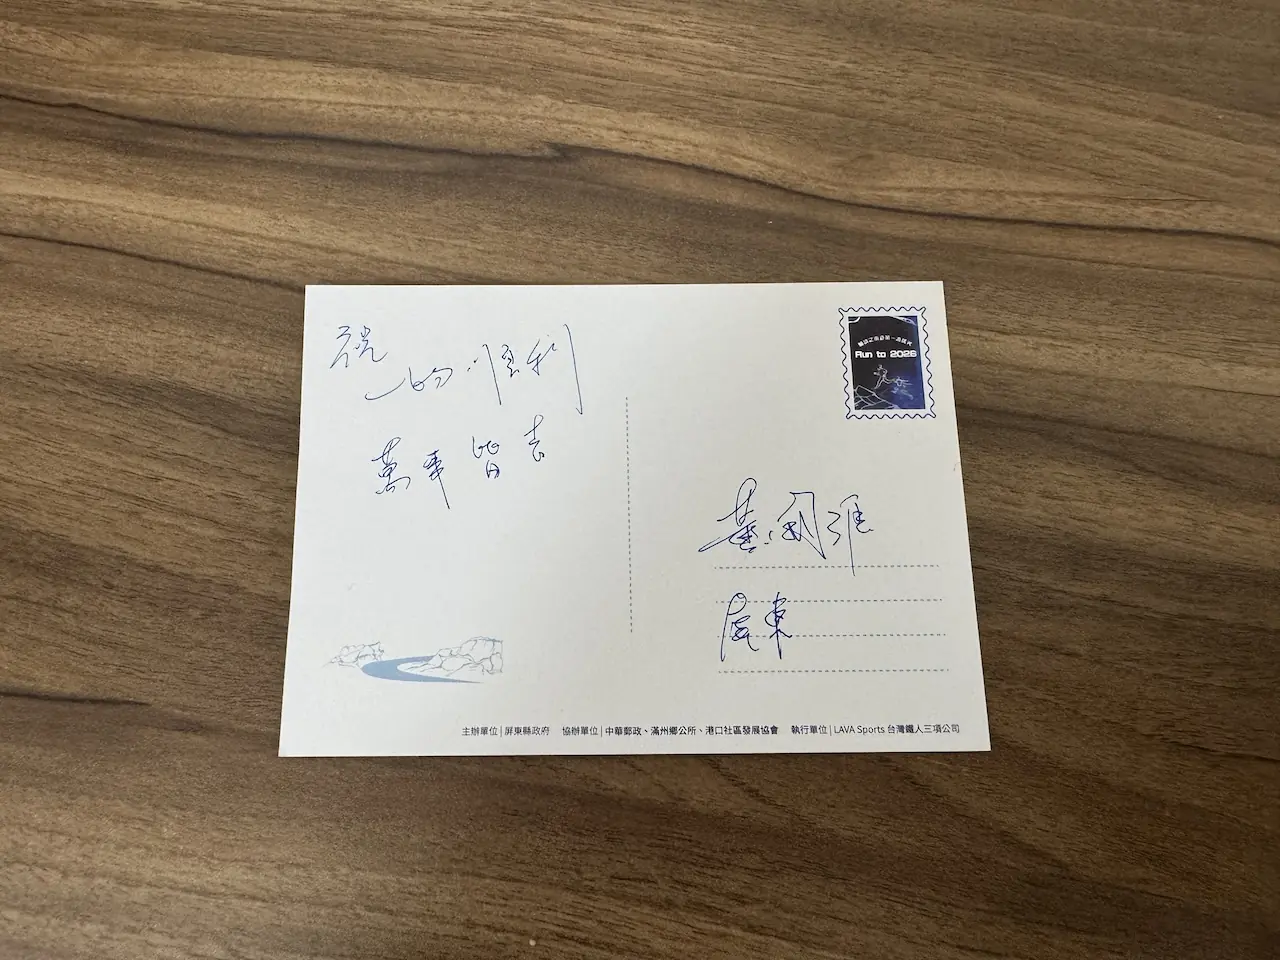 祝
一切順利
萬事皆吉
Run to 2026
屏東
主辦單位 | 屏東縣政府 協辦單位 | 中華郵政、滿州鄉公所、港口社區發展協會 執行單位 | LAVA Sports 台灣鐵人三項公司